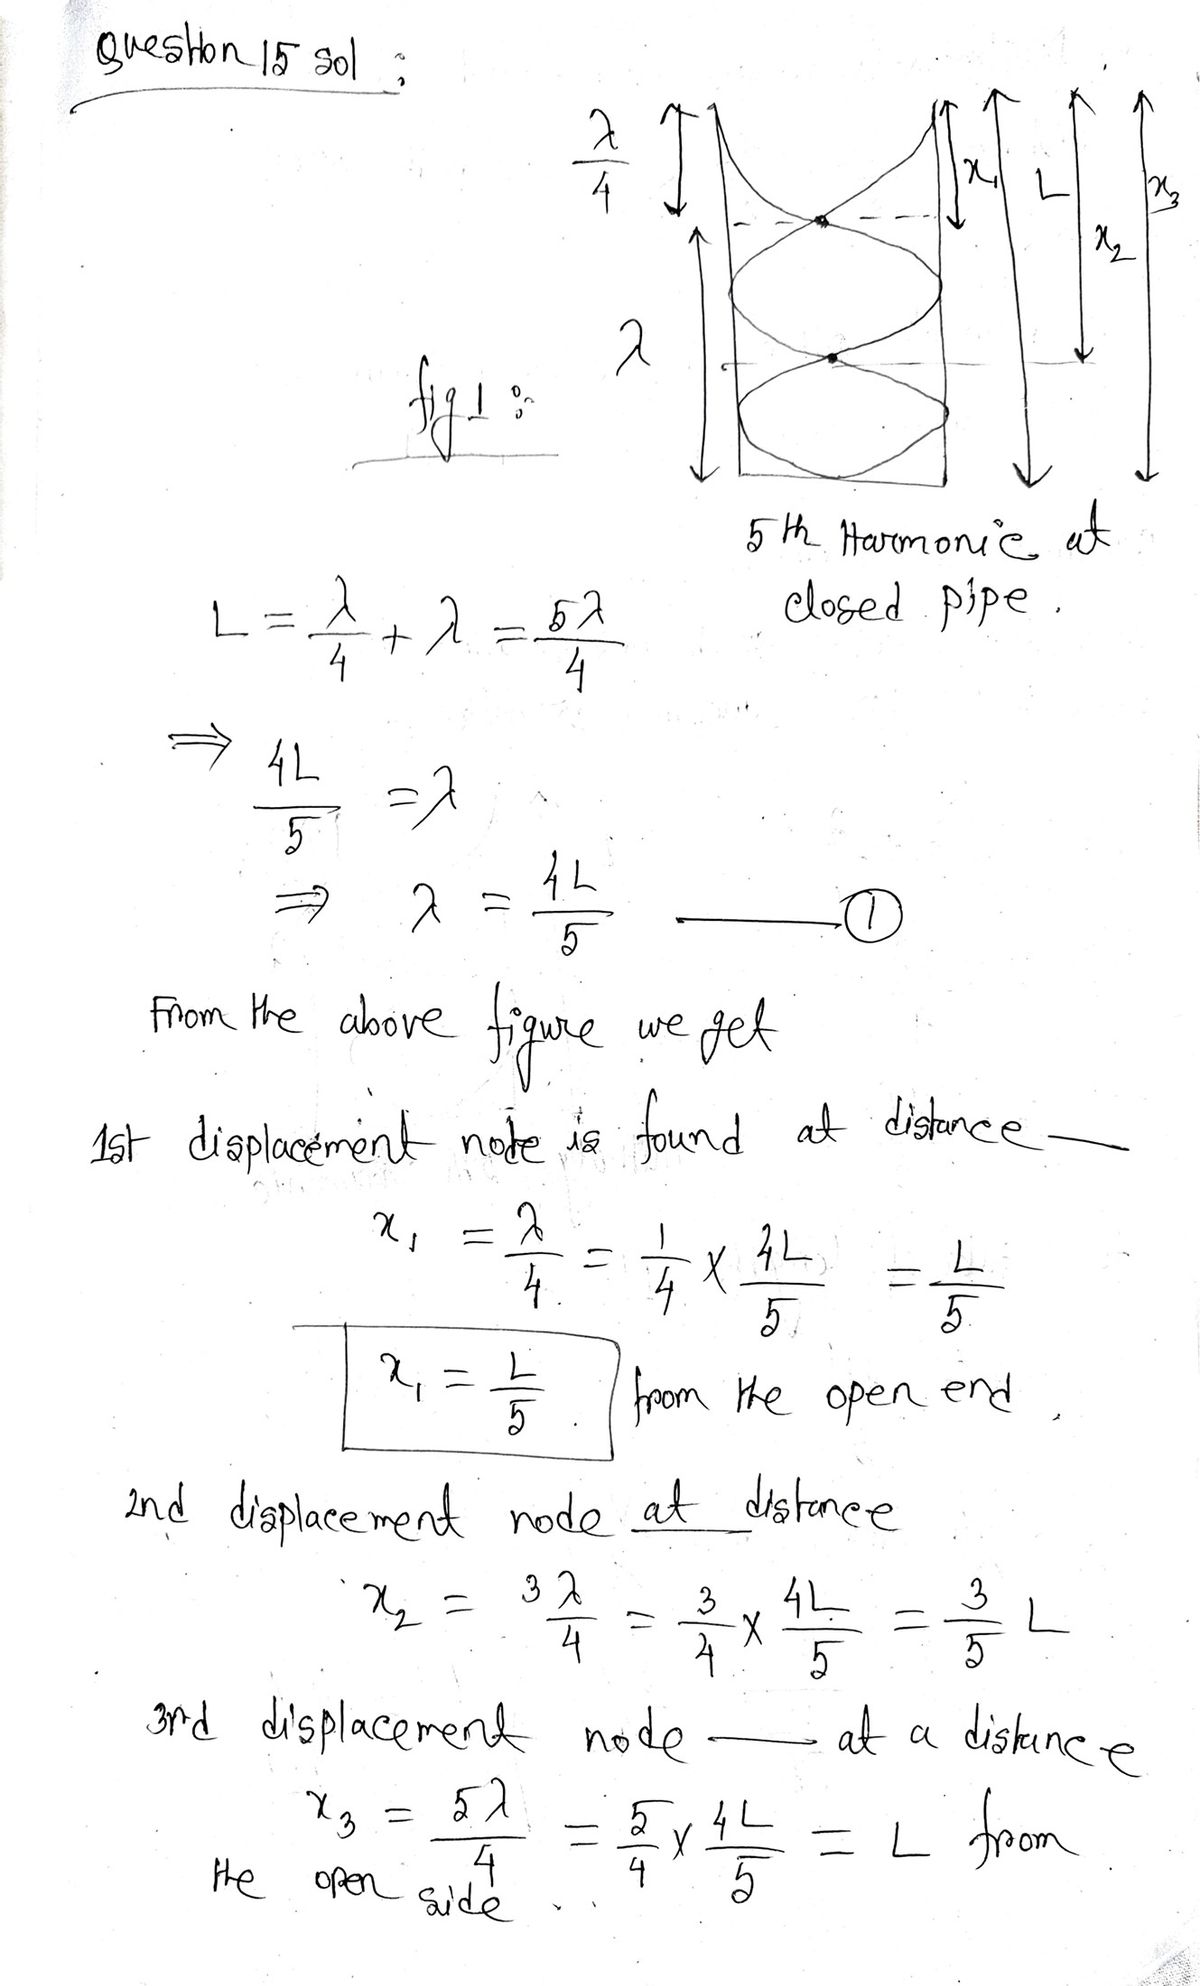 Question 15 Sol :
λ/4
x₁
L
x₂
x₃
λ
fig 1 :-
5th Harmonic at
closed pipe.
L = λ/4 + λ = 5λ/4
⇒ 4L/5 = λ
⇒ λ = 4L/5 —— ①
From the above figure we get
1st displacement node is found at distance —
x₁ = λ/4 = 1/4 × 4L/5 = L/5
x₁ = L/5 from the open end.
2nd displacement node at distance
x₂ = 3λ/4 = 3/4 × 4L/5 = 3/5 L
3rd displacement node — at a distance
x₃ = 5λ/4 = 5/4 × 4L/5 = L from
the open side..